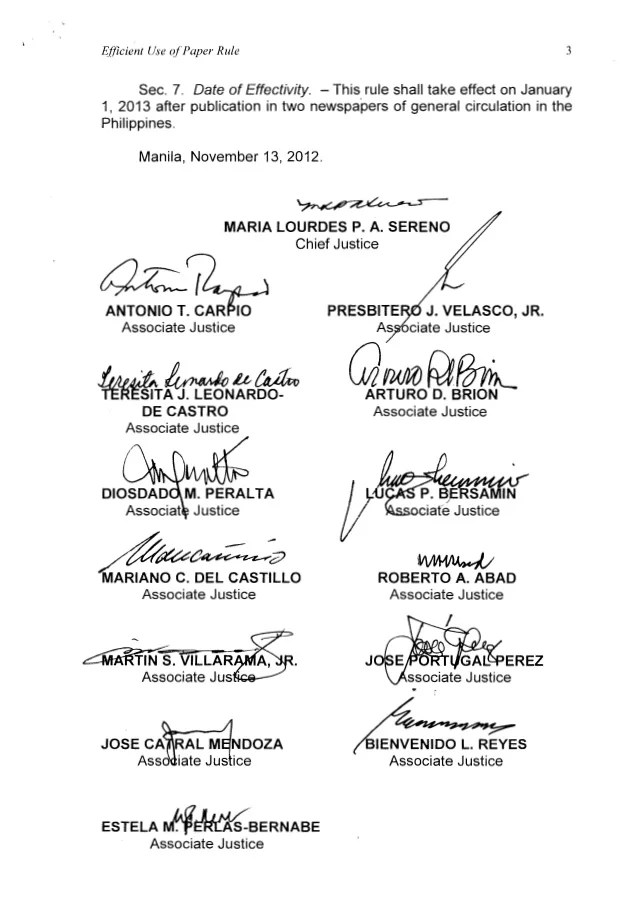 Efficient Use of Paper Rule 3
Sec. 7. Date of Effectivity. – This rule shall take effect on January
1, 2013 after publication in two newspapers of general circulation in the
Philippines.
Manila, November 13, 2012.
MARIA LOURDES P. A. SERENO
Chief Justice
Antonio Carpio
ANTONIO T. CARPIO
Associate Justice
PRESBITERO J. VELASCO, JR.
Associate Justice
Teresita Leonardo de Castro
TERESITA J. LEONARDO-
DE CASTRO
Associate Justice
Arturo D. Brion
ARTURO D. BRION
Associate Justice
DIOSDADO M. PERALTA
Associate Justice
LUCAS P. BERSAMIN
Associate Justice
MARIANO C. DEL CASTILLO
Associate Justice
ROBERTO A. ABAD
Associate Justice
MARTIN S. VILLARAMA, JR.
Associate Justice
JOSE PORTUGAL PEREZ
Associate Justice
JOSE CATRAL MENDOZA
Associate Justice
BIENVENIDO L. REYES
Associate Justice
ESTELA M. PERLAS-BERNABE
Associate Justice